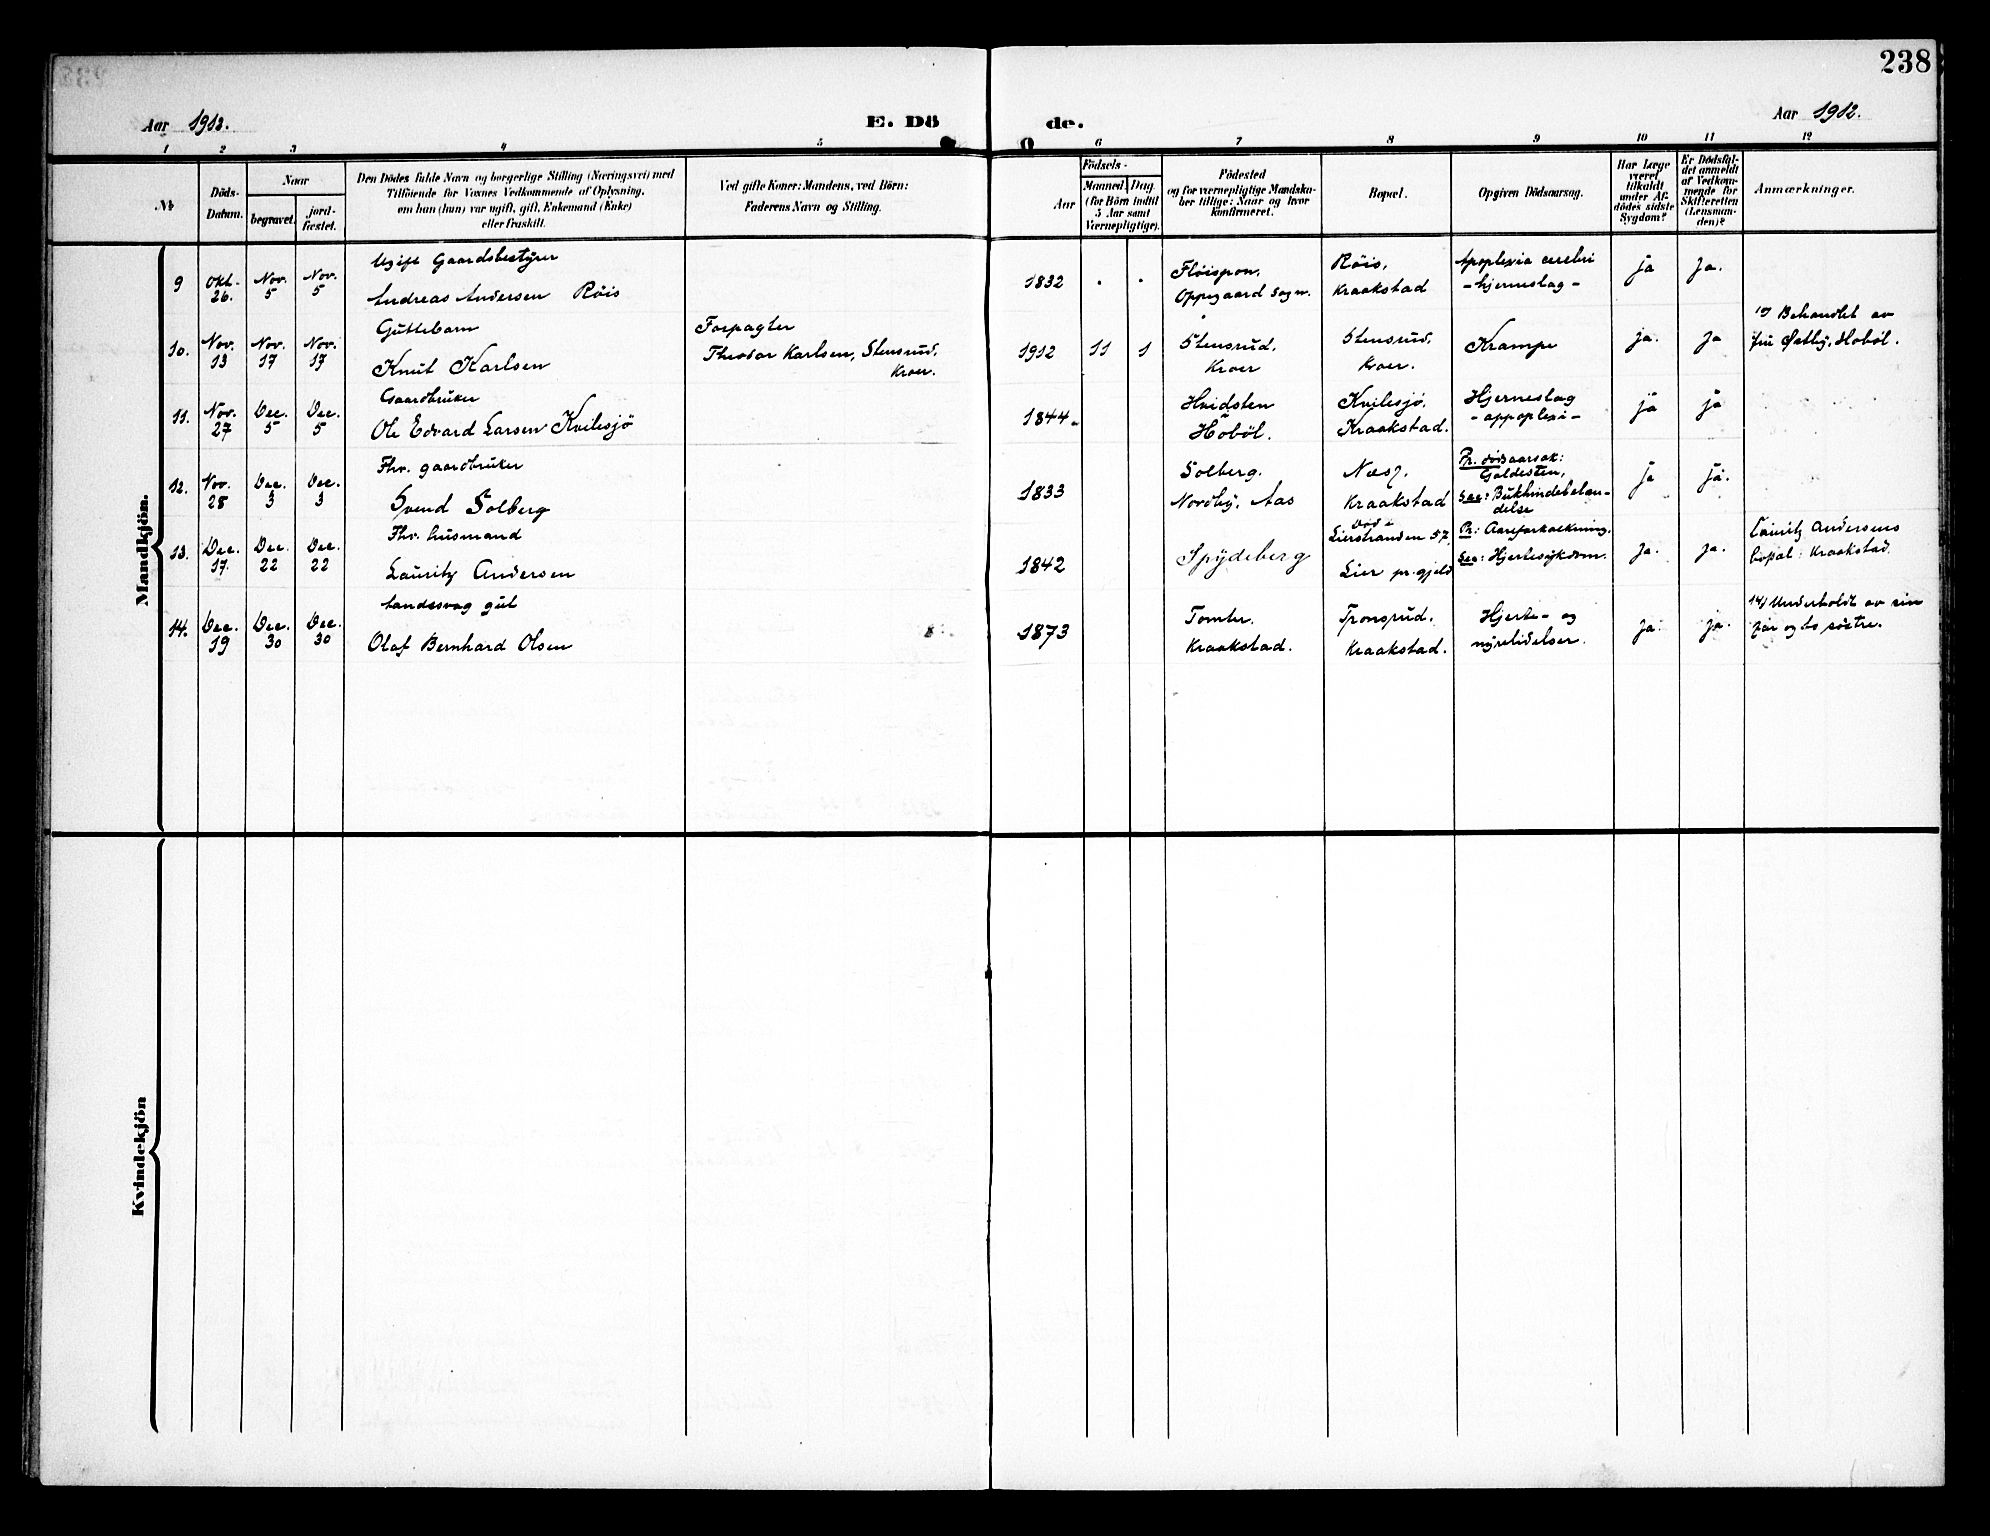 238
Aar 1912.
E. Dö de.
Aar 1912.
1 2 3 4 5 6 7 8 9 10 11 12
No
Döds-Datum.
Naar
begravet.
jord-fæstet.
Den Dödes fulde Navn og borgerlige Stilling (Næringsvei) med
Tilföiende for Voxnes Vedkommende af Oplysning,
om han (hun) var ugift, gift, Enkemand (Enke)
eller fraskilt.
Ved gifte Koner: Mandens, ved Börn:
Faderens Navn og Stilling.
Födsels-
Aar
Maaned. Dag
(for Börn indtil
5 Aar samt
Værnepligtige).
Födested
og for værnepligtige Mandska-
ber tillige: Naar og hvor
konfirmeret.
Bopæl.
Opgiven Dödsaarsag.
Har Læge
været
tilkaldt
under Af-
dödes sidste
Sygdom?
Er Dödsfal-
det anmeldt
af Vedkom-
mende for
Skifteretten
(Lensman-
den)?
Anmærkninger.
Mandkjön.
9 Okt. 26. Nov. 5 Nov. 5
Ugift Gaardsbestyrer
Andreas Andersen Röis
1832 Flöispon, Oppegaard Sogn.
Röis, Kraakstad
Apoplexia cerebri
- hjerneslag -
ja Ja.
10. Nov. 13 Nov. 17 Nov. 17
Guttebarn
Knut Karlsen
Forpagter
Theodor Karlsen, Stensrud,
Kroer.
1912 11 1 Stensrud, Kroer
Stensrud, Kroer.
Krampe
ja. ja
10) Behandlet av
fru Østby, Hoböl.
11. Nov. 27 Dec. 5 Dec. 5
Gaardbruker
Ole Edvard Larsen Kvilesjö
1844. Hvidsten Hoböl.
Kvilesjö, Kraakstad.
Hjerneslag
- appoplexi -
ja ja
12. Nov. 28 Dec. 3 Dec. 3
Fhv. gaardbruker
Svend Solberg
1833 Solberg. Nordby, Aas
Næs, Kraakstad
Pr. dödsaarsak:
Galdesten,
Sec: Bukhindebetæn-
delse
ja ja.
13. Dec. 17. Dec. 22 Dec. 22
Fhv. husmand
Lauritz Andersen
1842 Spydeberg
död i
Lierstranden 57,
Lier pr.gjeld
Pr: Aareforkalkning.
Sec: Hjertesykdom.
ja. ja.
Lauritz Andersens
bopæl: Kraakstad.
14. Dec. 19 Dec. 30 Dec. 30
Aandssvag gut
Olaf Bernhard Olsen
1873 Tomter. Kraakstad.
Trongrud. Kraakstad.
Hjerte- og
nyrelidelser.
ja. ja.
14) Underholdt av sin
far og to söstre.
Kvindekjön